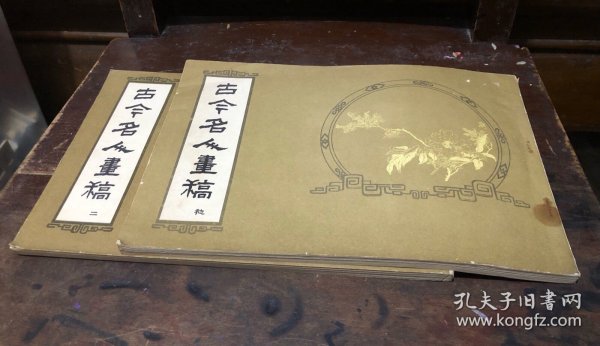 古今名人畫稿
二
古今名人畫稿
孔夫子旧书网
www.kongfz.com